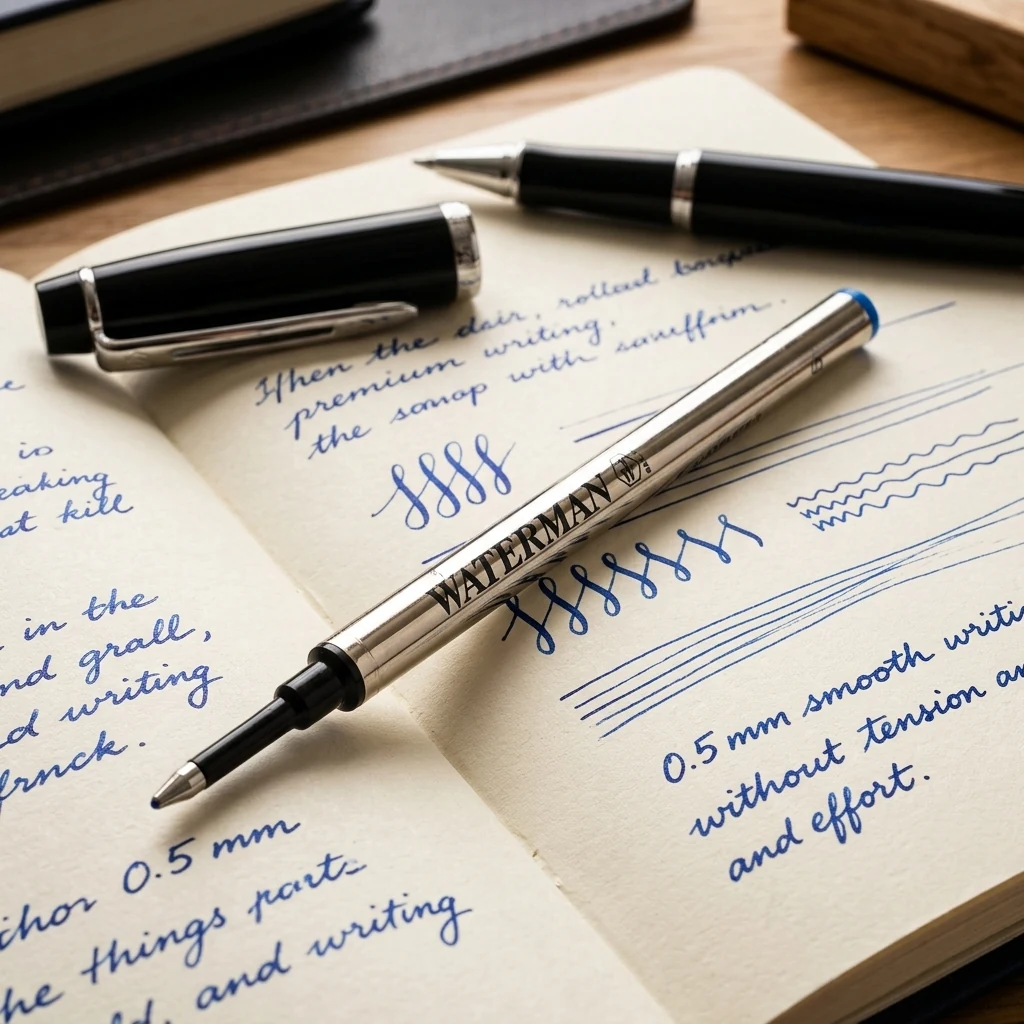 is
eaking
at kill
in the
nd grall,
d writing
frnck.
chor 0.5 mm
he things parts
ld, and writing
Ifhen the dair, rollead
premium writing.
the sonop with sanuffoim.
WATERMAN
0.5 mm smooth writi
without tension an
and effort.